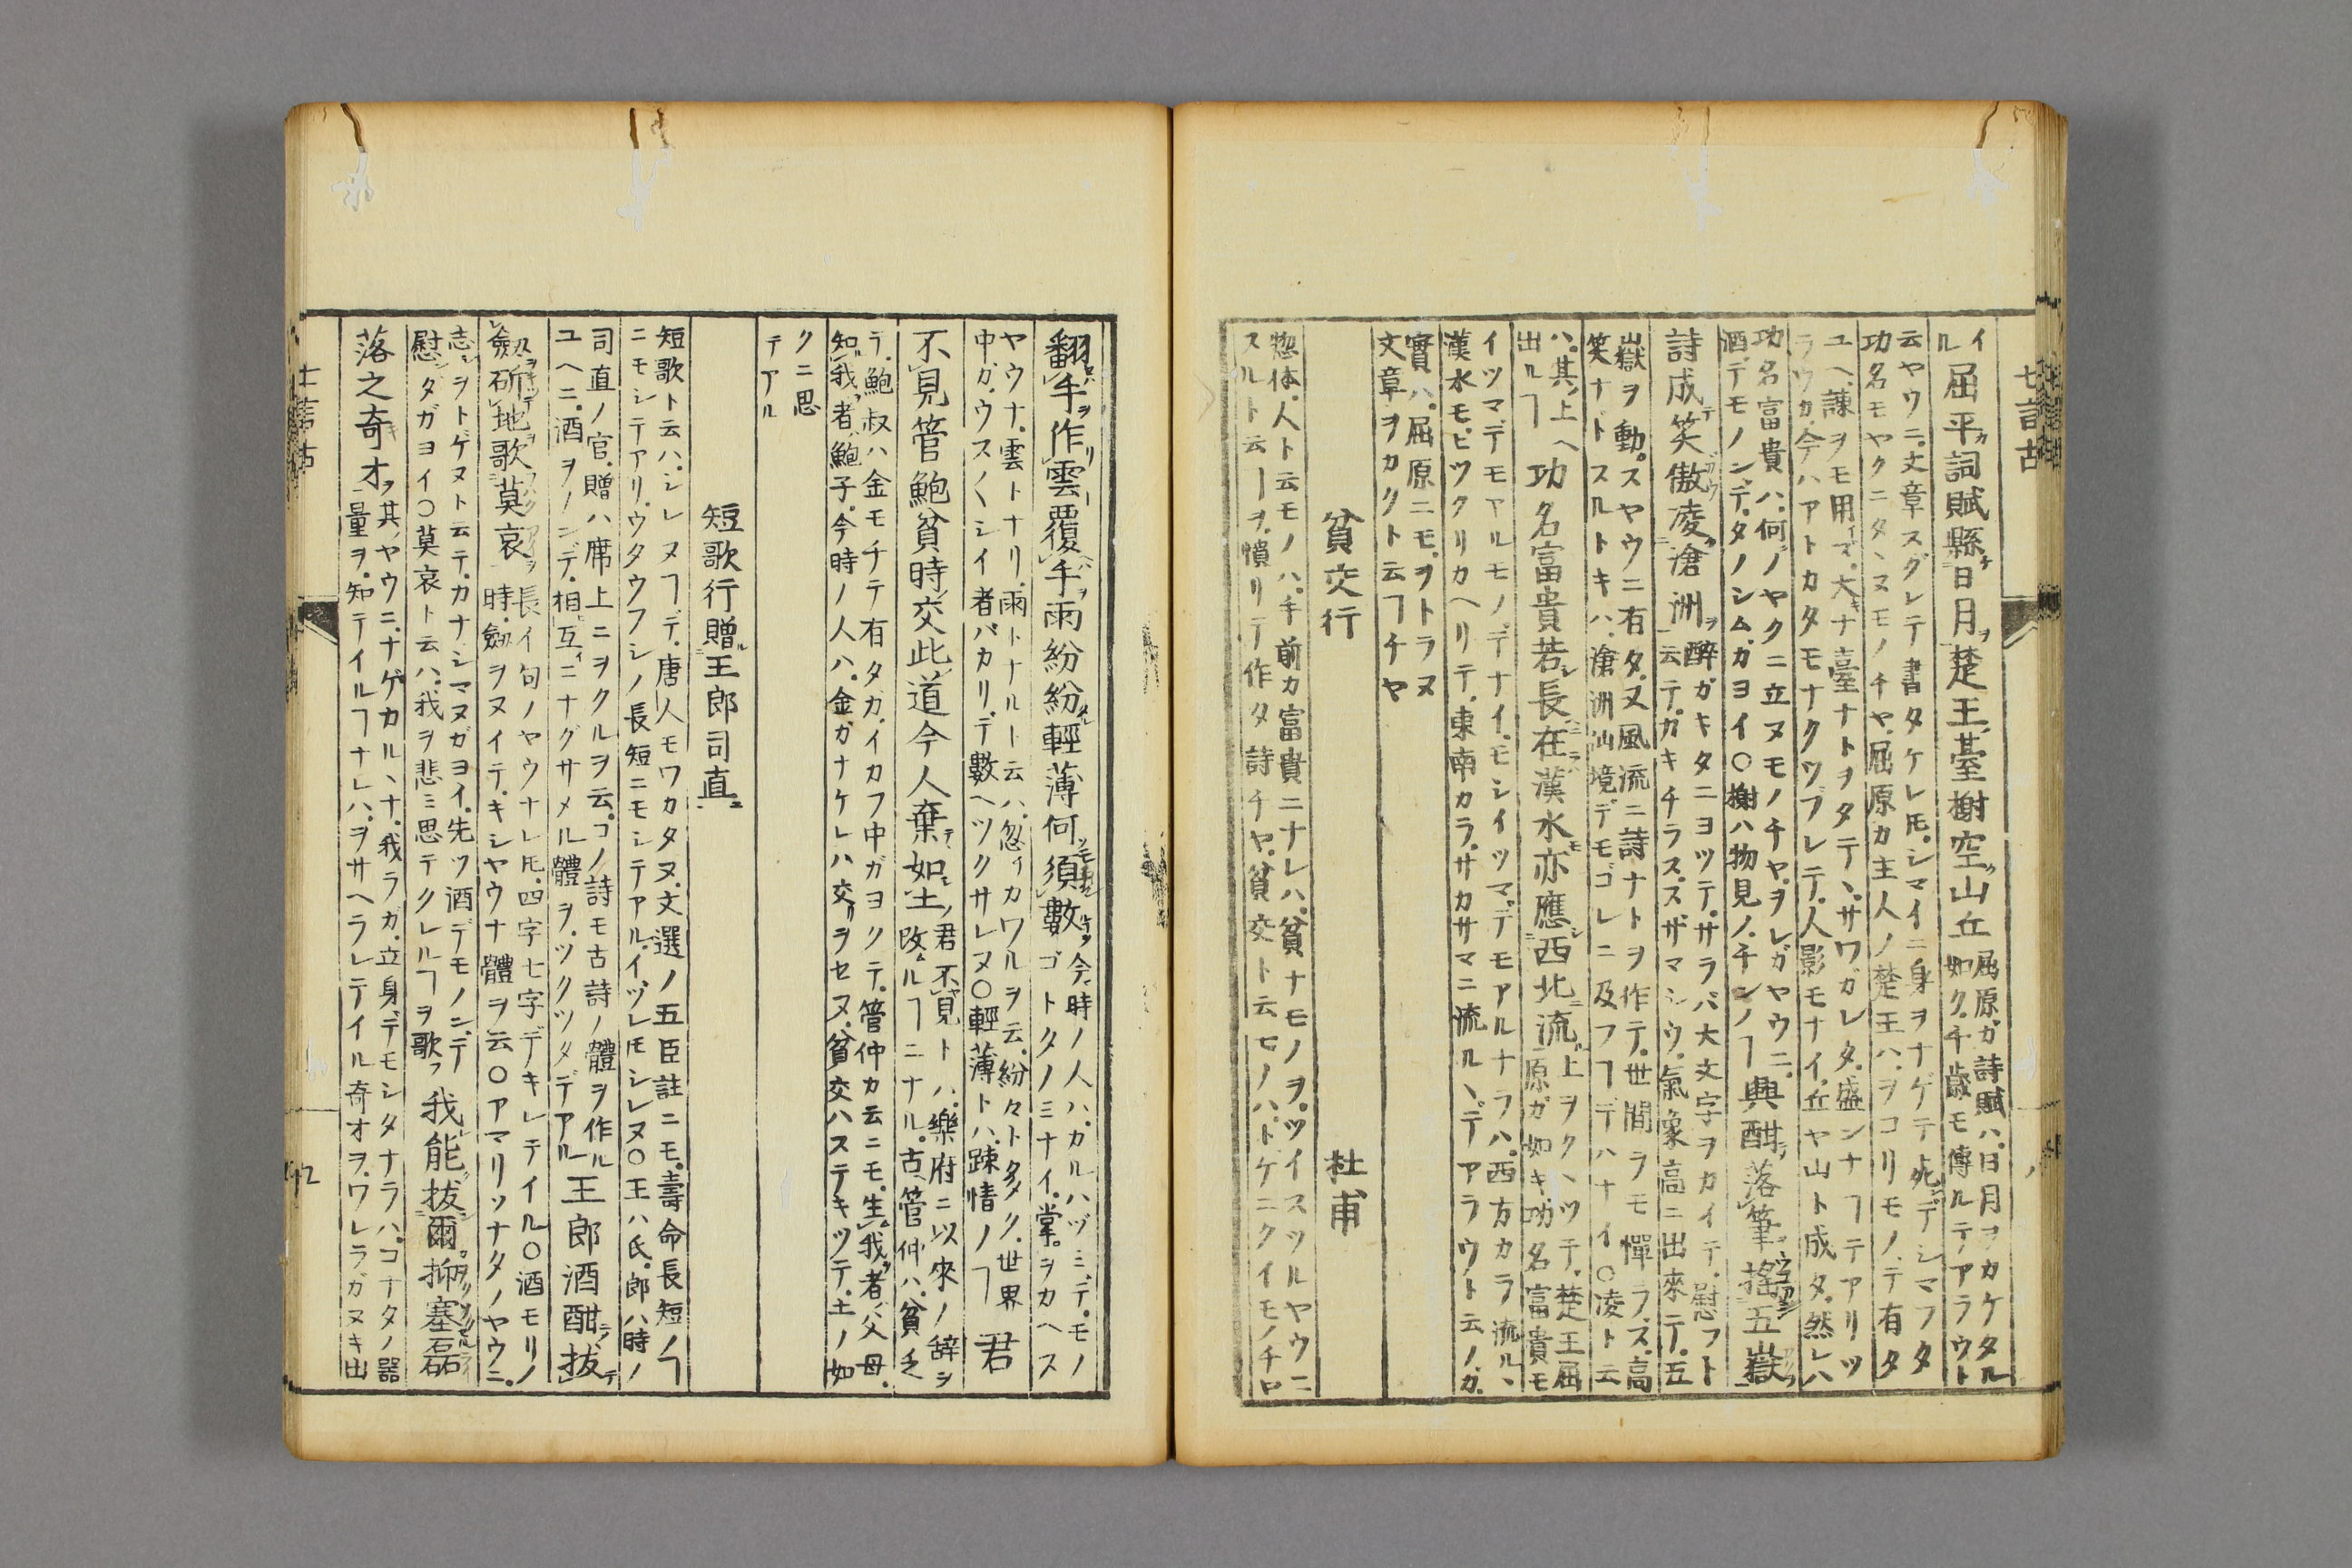 七言古
イ
ル
屈平詞賦縣日月楚王臺榭空山丘
屈原ガ詩賦ハ日月ヲカケタル
如ク千歳モ傳ルテアラウト
云ヤウニ文章スグレテ書タケレ𪜈シマイニ身ヲナゲテ死デシマフタ
功名モヤクニタヽヌモノチヤ屈原カ主人ノ楚王ハヲコリモノテ有タ
ユヘ諌ヲモ用イマ大キナ臺ナトヲタテヽサワガレタ盛ンナヿテアリツ
ラウカ今ハアトカタモナクツブレテ人影モナイ丘ヤ山ト成タ然レハ
功名富貴ハ何ノヤクニ立ヌモノチヤヲレガヤウニ
酒デモノンデタノシムガヨイ○榭ハ物見ノチンノヿ
興酣落筆搖五嶽
詩成笑傲凌滄洲
醉ガキタニヨツテサラバ大文字ヲカイテ慰フト
云テガキチラススザマシウ氣象高ニ出來テ五
嶽ヲ動スヤウニ有タ又風流ニ詩ナトヲ作テ世間ラモ憚ラズ高
笑ナドスルトキハ滄洲仙境デモゴレニ及フヿデハナイ○凌ト云
ハ其上ヘ
出ルヿ
功名富貴若長在漢水亦應西北流
上ヲクヽツテ楚王屈
原ガ如キ功名富貴モ
イツマデモアルモノデナイモシイツマデモアルナラハ西方カラ流ルヽ
漢水モヒツクリカヘリテ東南カラサカサマニ流ルヽデアラウト云ノガ
實ハ屈原ニモヲトラヌ
文章ヲカクト云ヿチヤ
貧交行　杜甫
惣体人ト云モノハ手前カ富貴ニナレハ貧ナモノヲツイスツルヤウニ
スルト云ヿヲ憤リテ作タ詩チヤ貧交ト云モノハトゲニクイモノチロ
翻手作雲覆手雨紛紛輕薄何須數
今時ノ人ハカルハヅミデモノ
ゴトタノミナイ掌ヲカヘス
ヤウナ雲トナリ雨トナルト云ハ忽カワルヲ云紛々ト多ク世界
中ガウス〱シイ者バカリデ數ヘツクサレヌ○輕薄トハ踈情ノヿ
君
不見管鮑貧時交此道今人棄如土
君不見トハ樂府ニ以來ノ辞ヲ
改ルヿニナル古管仲ハ貧乏
テ鮑叔ハ金モチテ有タガイカフ中ガヨクテ管仲カ云ニモ生我者父母
知我者鮑子今時ノ人ハ金ガナケレハ交リヲセヌ貧交ハステキツテ土ノ如
クニ思
テアル
短歌行贈王郎司直
短歌ト云ハシレヌヿデ唐人モワカタヌ文選ノ五臣註ニモ壽命長短ノヿ
ニモシテアリウタウフシノ長短ニモシテアルイツレ𪜈シレヌ○王ハ氏郎ハ時ノ
司直ノ官贈ハ席上ニヲクルヲ云コノ詩モ古詩ノ體ヲ作ル
ユヘニ酒ヲノンデ相互ニナグサメル體ヲツクツタデアル
王郎酒酣拔
劔斫地歌莫哀
長イ句ノヤウナレ𪜈四字七字デキレテイル○酒モリノ
時劔ヲヌイテキシヤウナ體ヲ云○アマリツナタノヤウニ
志ヲトゲヌト云テカナシマヌガヨイ先ツ酒デモノンデ
慰ダガヨイ○莫哀ト云ハ我ヲ悲ミ思テクレルヿヲ歌フ
我能拔爾抑塞磊
落之奇才
其ヤウニナゲカルヽナ我ラガ立身デモシタナラハコナタノ器
量ヲ知テイルヿナレハヲサヘラレテイル奇才ヲワレラガヌキ出